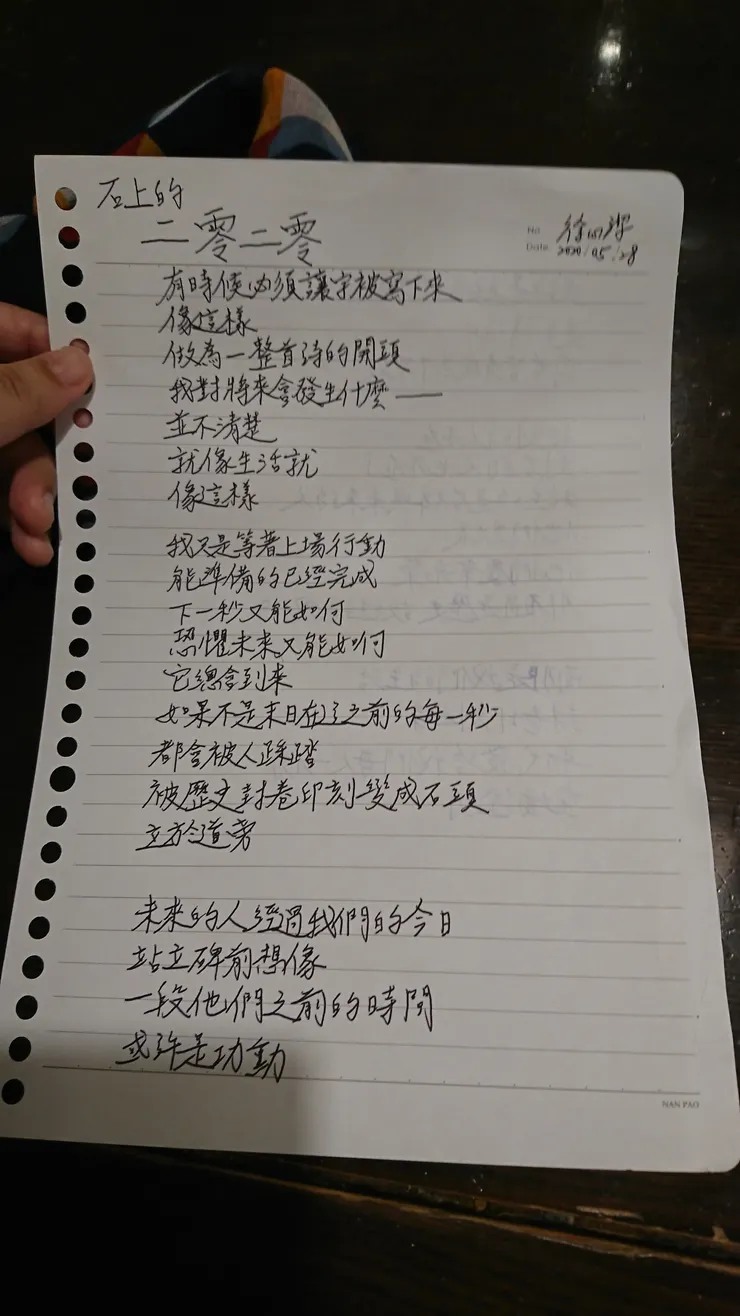 石上的
二零二零
No.
Date.
2020/05/28
有時候必須讓字被寫下來
像這樣
做為一整首詩的開頭
我對將來會發生什麼——
並不清楚
就像生活就
像這樣
我只是等著上場行動
能準備的已經完成
下一秒又能如何
恐懼未來又能如何
它總會到來
如果不是末日在了之前的每一秒
都會被人踩踏
被歷史封卷印刻變成石頭
立於道旁
未來的人經過我們的今日
站立碑前想像
一段他們之前的時間
或許是功勳
NAN PAO